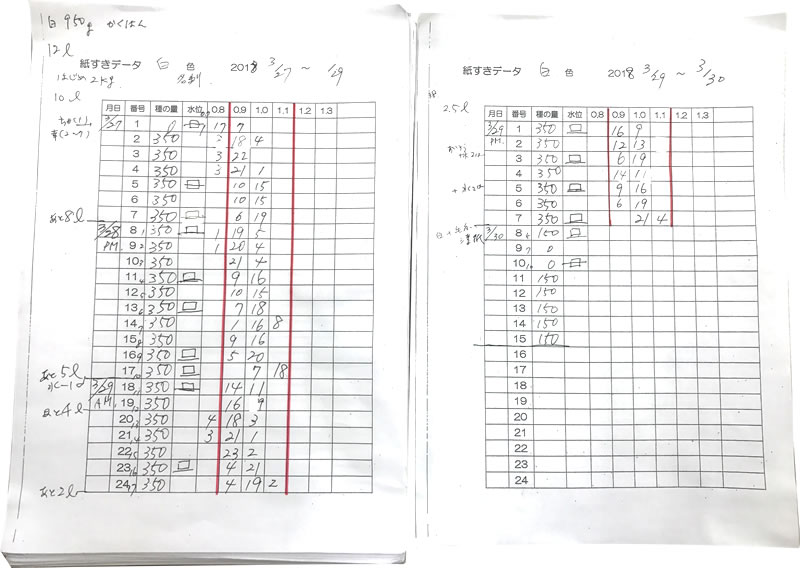 白 950g かくはん
12l
紙すきデータ 白 色 2018 3/27 ~ 1/29
はじめ 2kg 名刺
10l
月日 番号 種の量 水位 0.8 0.9 1.0 1.1 1.2 1.3
3/27 1 l 17 7
2 350 3 18 4
3 350 3 22
4 350 3 21 1
5 350 10 15
6 350 10 15
7 350 6 19
あと8l
3/28 8 350 1 19 5
PM 9 350 1 20 4
10 350 21 4
11 350 9 16
12 350 10 15
13 350 7 18
14 350 1 16 8
15 350 9 16
16 350 5 20
17 350 7 18
あと5l
3/29 18 350 14 11
AM 19 350 16 9
あと4l
20 350 4 18 3
21 350 3 21 1
22 350 23 2
23 350 4 21
24 350 4 19 2
あと2l
紙すきデータ 白 色 2018 3/29 ~ 3/30
2.5l
月日 番号 種の量 水位 0.8 0.9 1.0 1.1 1.2 1.3
3/29 1 350 16 9
PM 2 350 12 13
3 350 6 19
4 350 14 11
5 350 9 16
6 350 6 19
7 350 21 4
3/30 8 150
9 0
10 0
11 150
12 150
13 150
14 150
15 150
16
17
18
19
20
21
22
23
24